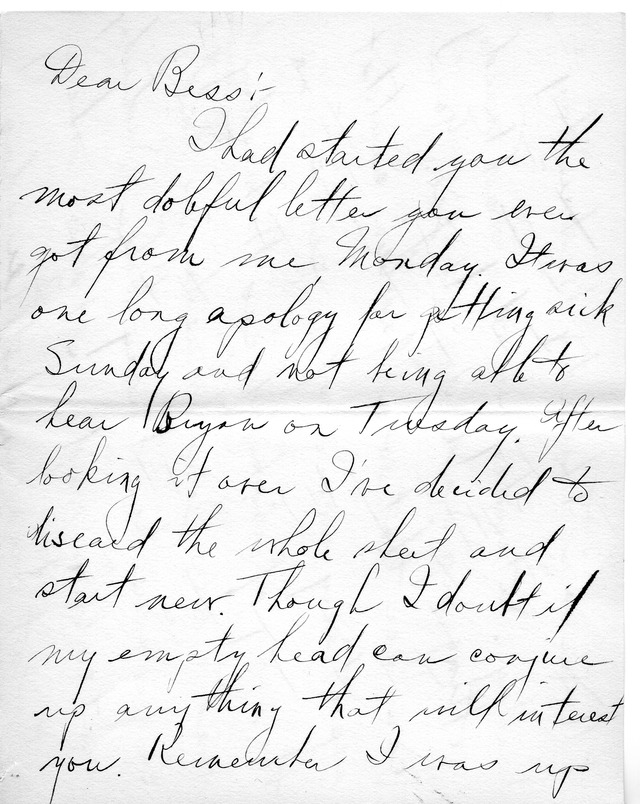 Dear Bess:-
I had started you the
most dolful letter you ever
got from me, Monday. It was
one long apology for getting sick
Sunday and not being able to
hear Bryan on Tuesday. After
looking it over I've decided to
discard the whole sheet and
start new. Though I doubt if
my empty head can conjure
up anything that will interest
you. Remember I was up